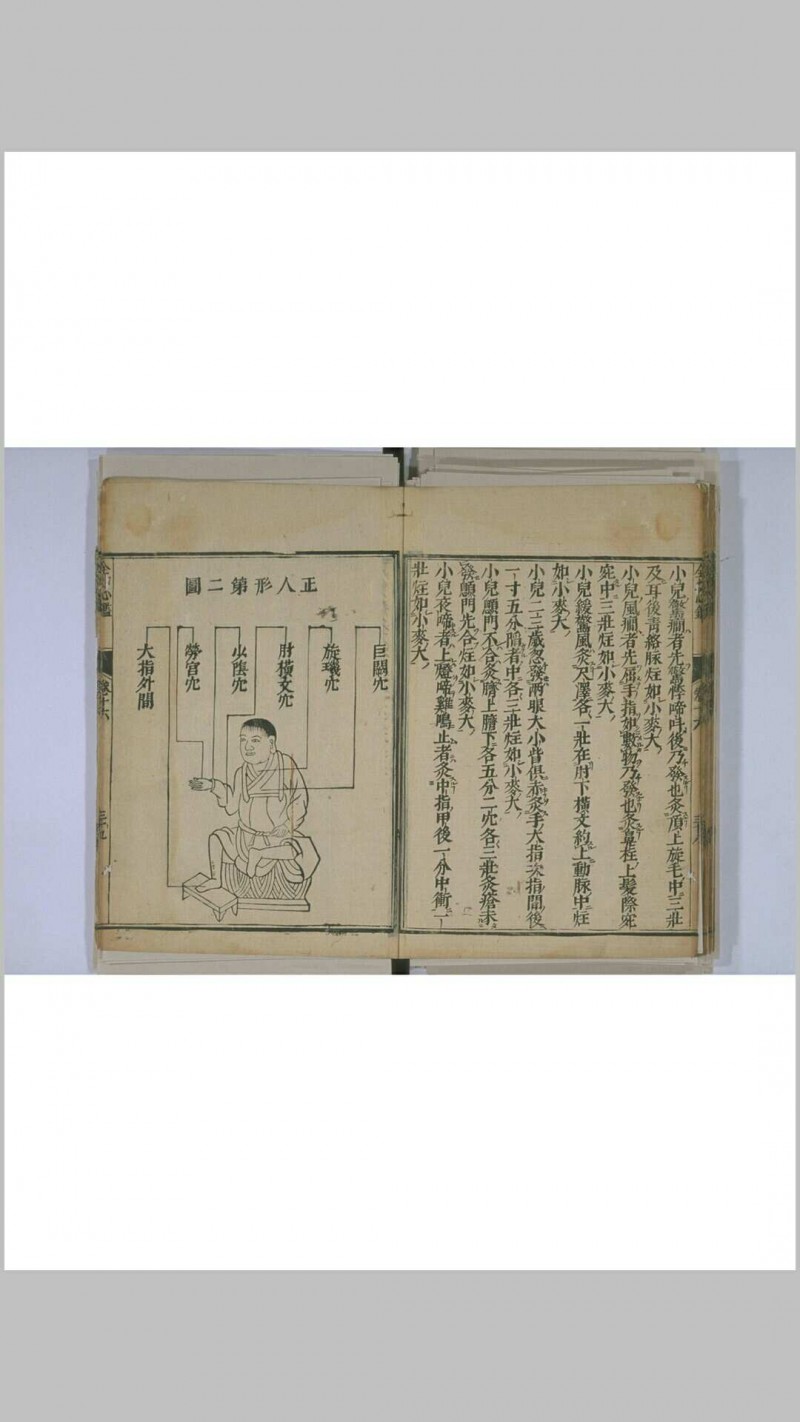 小兒驚癎者先驚悸啼呌後乃發也灸頂上旋毛中三壯
及耳後青絡脉炷如小麥大
小兒風癎者先屈手指如數物乃發也灸鼻柱上髮際宛
宛中三壯炷如小麥大
小兒緩驚風灸尺澤各一壯在肘下橫文約上動脉中炷
如小麥大
小兒二三歲忽發兩眼大小眥俱赤灸手大指次指間後
一寸五分陷者中各三壯炷如小麥大
小兒顖門不合灸臍上臍下各五分二穴各三壯灸瘡未
發顖門先合炷如小麥大
小兒夜啼者上燈啼雞鳴止者灸中指甲後一分中衝一
壯炷如小麥大
卷十六
正人形第二圖
巨闕穴
旋璣穴
肘橫文穴
少陰穴
勞宮穴
大指外間
卷十六
三十九